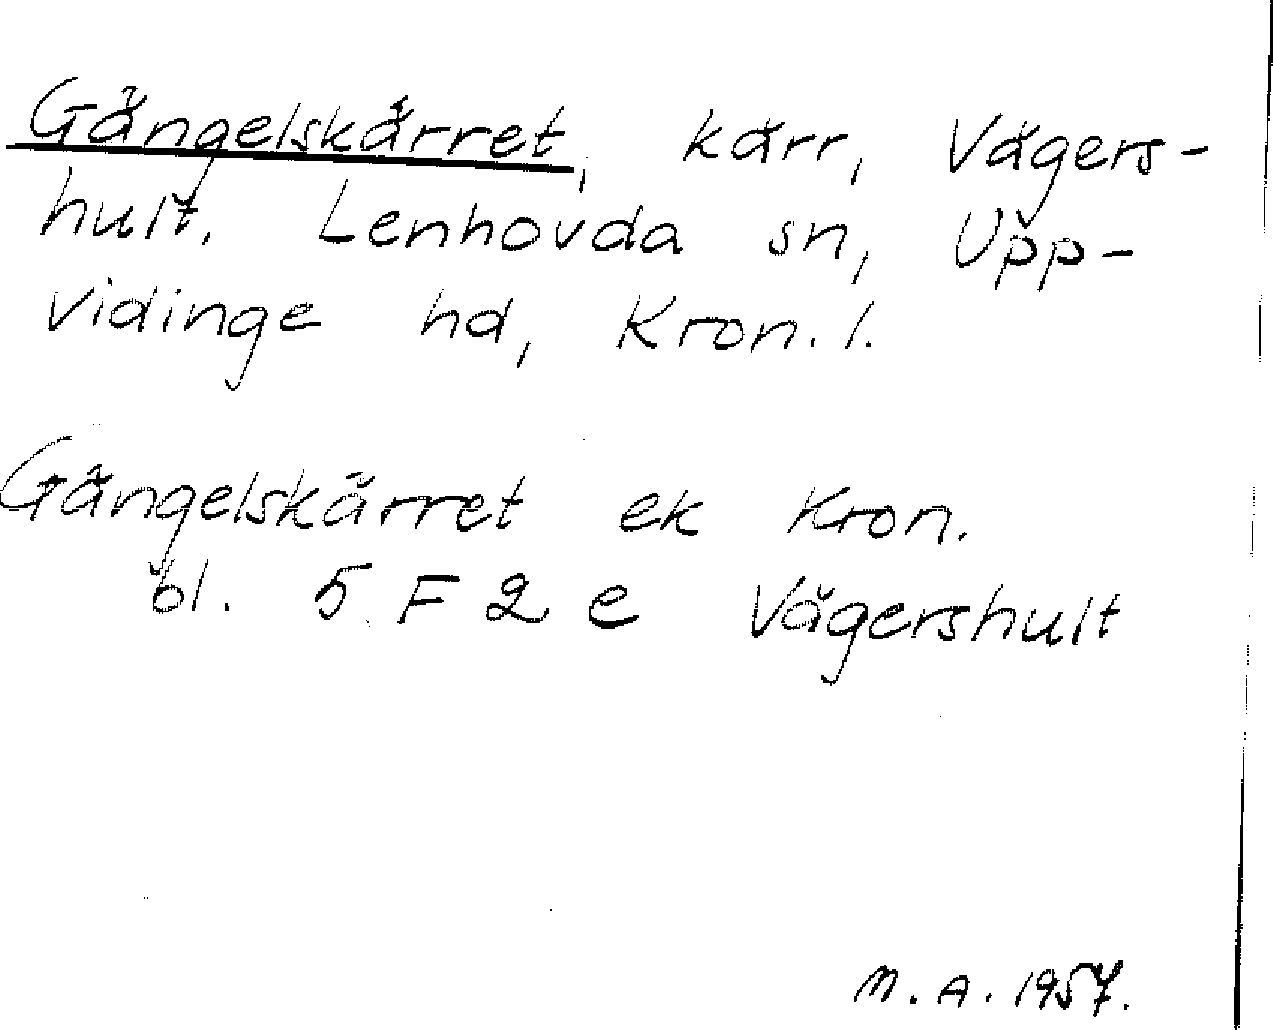 Gängelskärret, kärr, Vägers-
hult. Lenhovda sn, Upp-
vidinge hd, Kron. l.
Gängelskärret ek Kron.
bl. 5 F 2 e Vägershult
M. A. 1957.